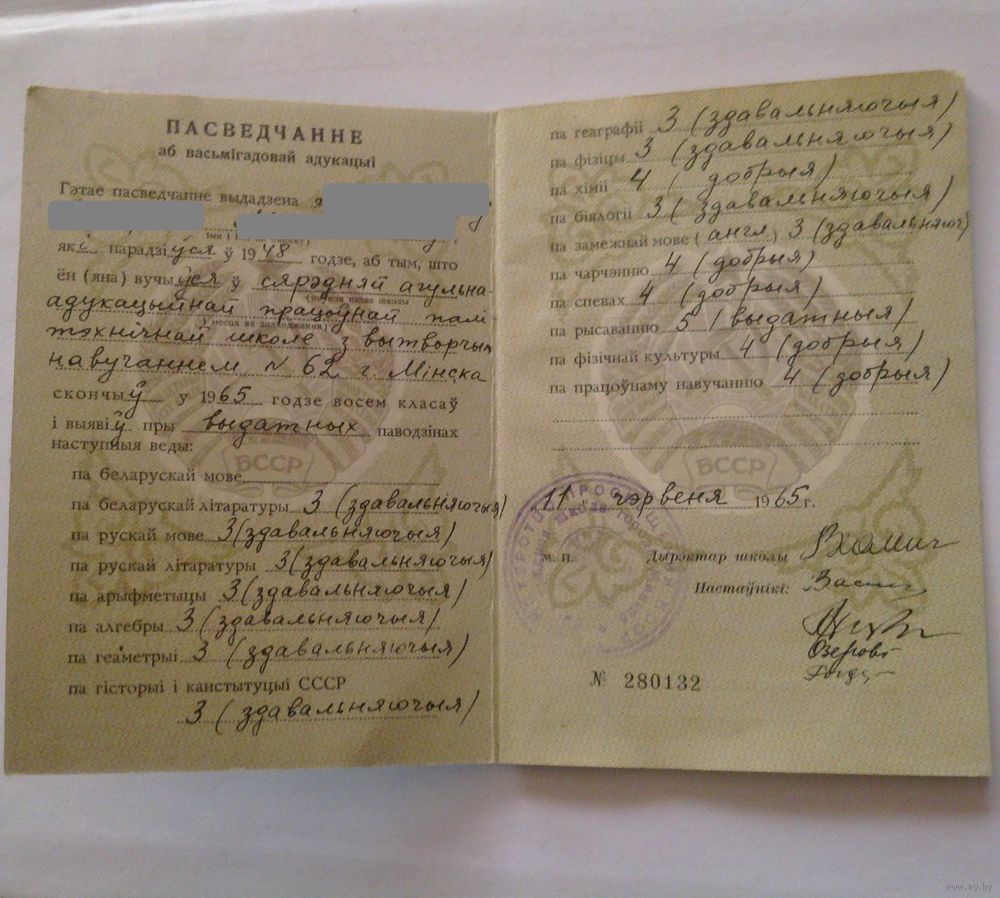 ПАСВЕДЧАННЕ
аб васьмігадовай адукацыі
Гэтае пасведчанне выдадзена
які нарадзіўся ў 1948 годзе, аб тым, што
ён (яна) вучыўся ў сярэдняй агульна-
адукацыйнай працоўнай палі
тэхнічнай школе з вытворчым
навучаннем № 62 г. Мінска
скончыў у 1965 годзе восем класаў
і выявіў пры выдатных паводзінах
наступныя веды:
па беларускай мове
па беларускай літаратуры 3 (здавальняючыя)
па рускай мове 3 (здавальняючыя)
па рускай літаратуры 3 (здавальняючыя)
па арыфметыцы 3 (здавальняючыя)
па алгебры 3 (здавальняючыя)
па геаметрыі 3 (здавальняючыя)
па гісторыі і канстытуцыі СССР
3 (здавальняючыя)
БССР
па геаграфіі 3 (здавальняючыя)
па фізіцы 3 (здавальняючыя)
па хіміі 4 (добрыя)
па біялогіі 3 (здавальняючыя)
па замежнай мове (англ.) 3 (здавальняюч)
па чарчэнню 4 (добрыя)
па спевах 4 (добрыя)
па рысаванню 5 (выдатныя)
па фізічнай культуры 4 (добрыя)
па працоўнаму навучанню 4 (добрыя)
БССР
11 " чэрвеня 1965 г.
М. П. Дырэктар школы
Настаўнікі:
№ 280132
www.ay.by